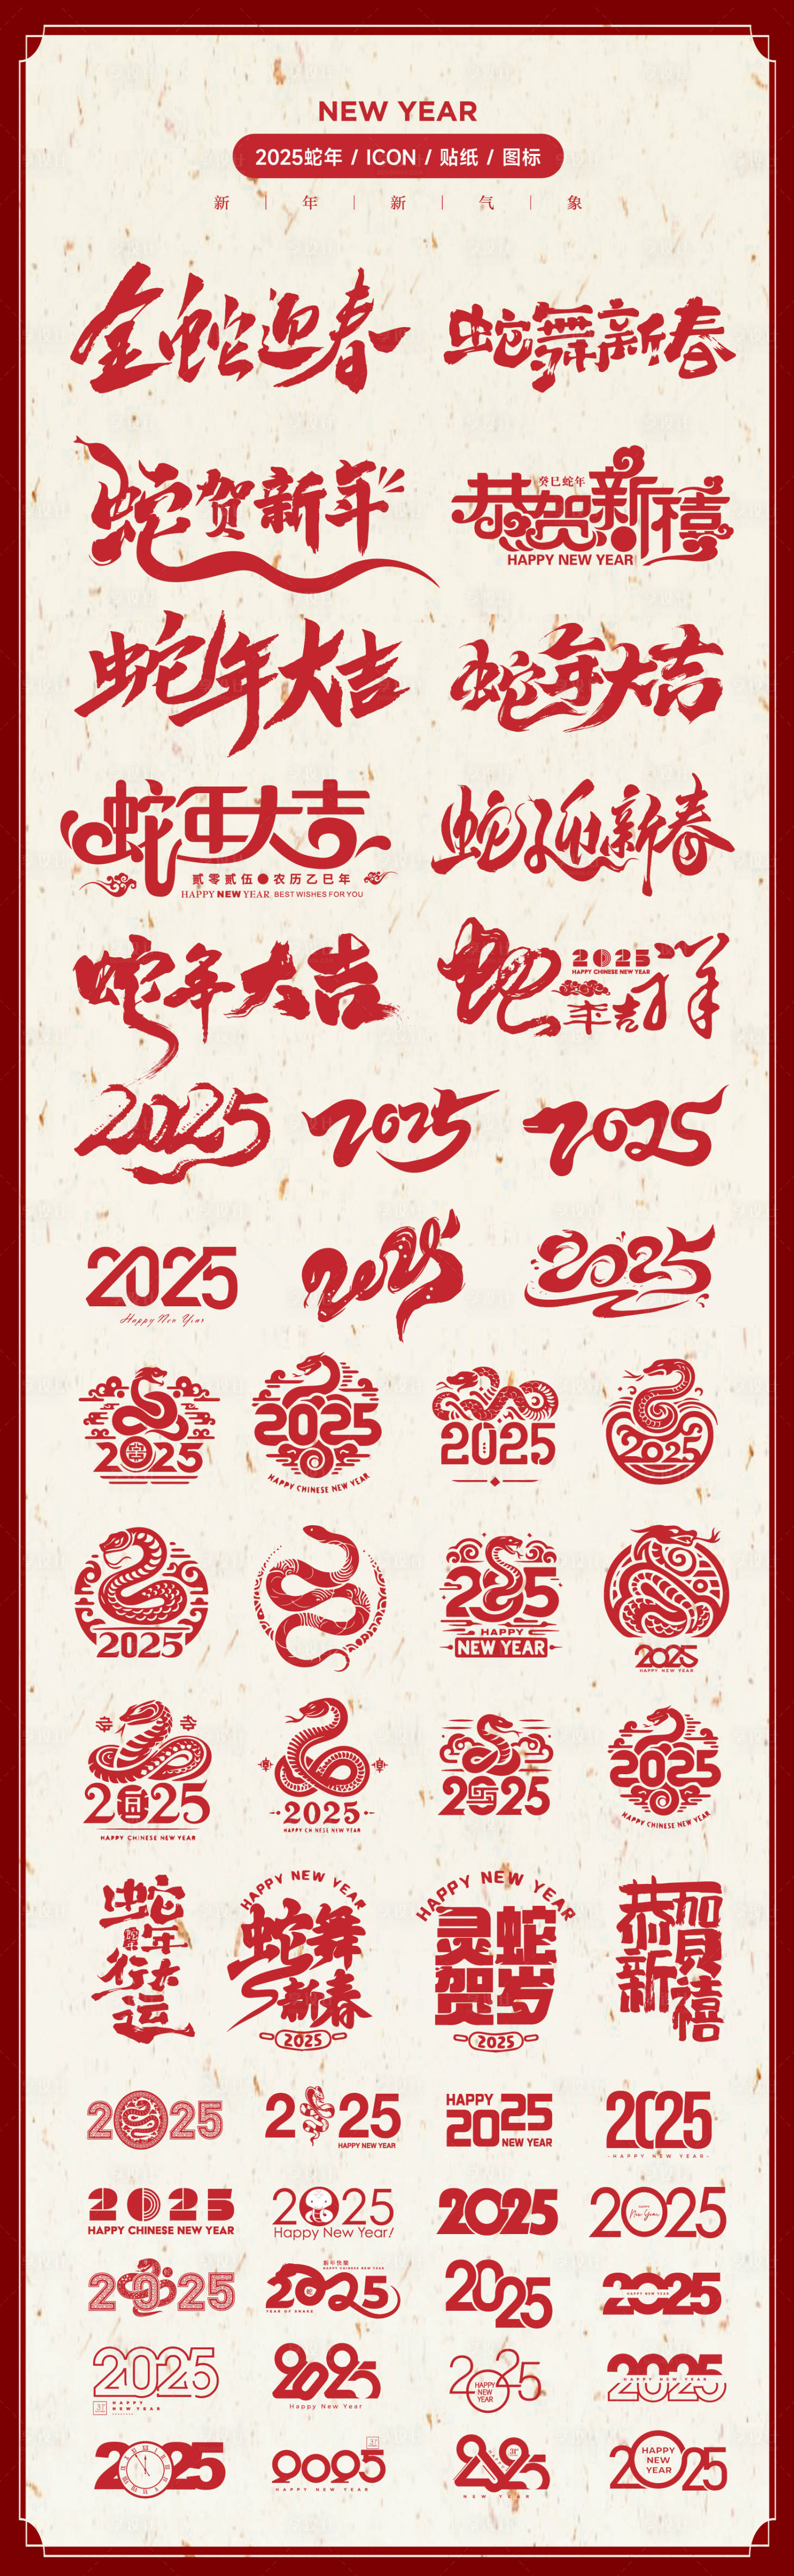 NEW YEAR
2025蛇年 / ICON / 贴纸 / 图标
新 | 年 | 新 | 气 | 象
金蛇迎春
蛇舞新春
蛇贺新年
癸巳蛇年
恭贺新禧
HAPPY NEW YEAR
蛇年大吉
蛇年大吉
蛇年大吉
贰零贰伍●农历乙巳年
HAPPY NEW YEAR BEST WISHES FOR YOU
蛇迎新春
蛇年大吉
2025
HAPPY CHINESE NEW YEAR
蛇年吉祥
2025
2025
2025
2025
Happy New Year
2025
2025
2025
2025
HAPPY CHINESE NEW YEAR
2025
2025
2025
285
HAPPY
NEW YEAR
2025
HAPPY NEW YEAR
2025
HAPPY CHINESE NEW YEAR
2025
HAPPY CHINESE NEW YEAR
2025
2025
HAPPY CHINESE NEW YEAR
蛇年行大运
HAPPY NEW YEAR
蛇舞新春
2025
HAPPY NEW YEAR
灵蛇贺岁
2025
恭贺新禧
2025
2025
HAPPY NEW YEAR
HAPPY
2025
NEW YEAR
2025
-HAPPY NEW YEAR-
2025
HAPPY CHINESE NEW YEAR
2025
Happy New Year!
2025
2025
New Year
2025
新年快乐
HAPPY CHINESE NEW YEAR
2025
蛇
YEAR OF SNAKE
2025
2025
HAPPY NEW YEAR
2025
HAPPY
NEW YEAR
2025
Happy New Year
2025
HAPPY
NEW
YEAR
2025
HAPPY NEW YEAR
2025
2025
HAPPY NEW YEAR
2025
NEW YEAR
2025
HAPPY
NEW
YEAR